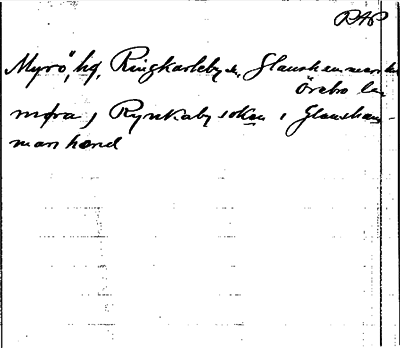 RAP
Myrö, hg, Ringkarleby sn, Glanshammars hd
Örebro län
myra, Rynkaby soken i Glansham-
mars hærad